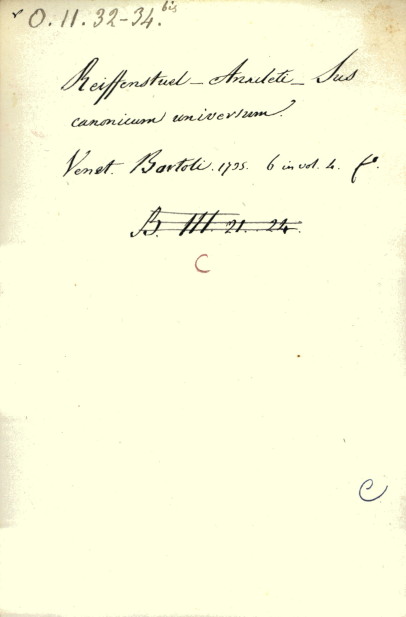 O. II. 32-34. bis
Reiffenstuel - Anacleti - Jus
canonicum universum.
Venet. Bartoli. 1735. 6 in vol. 4. fo.
B. III. 21. 24.
C
C